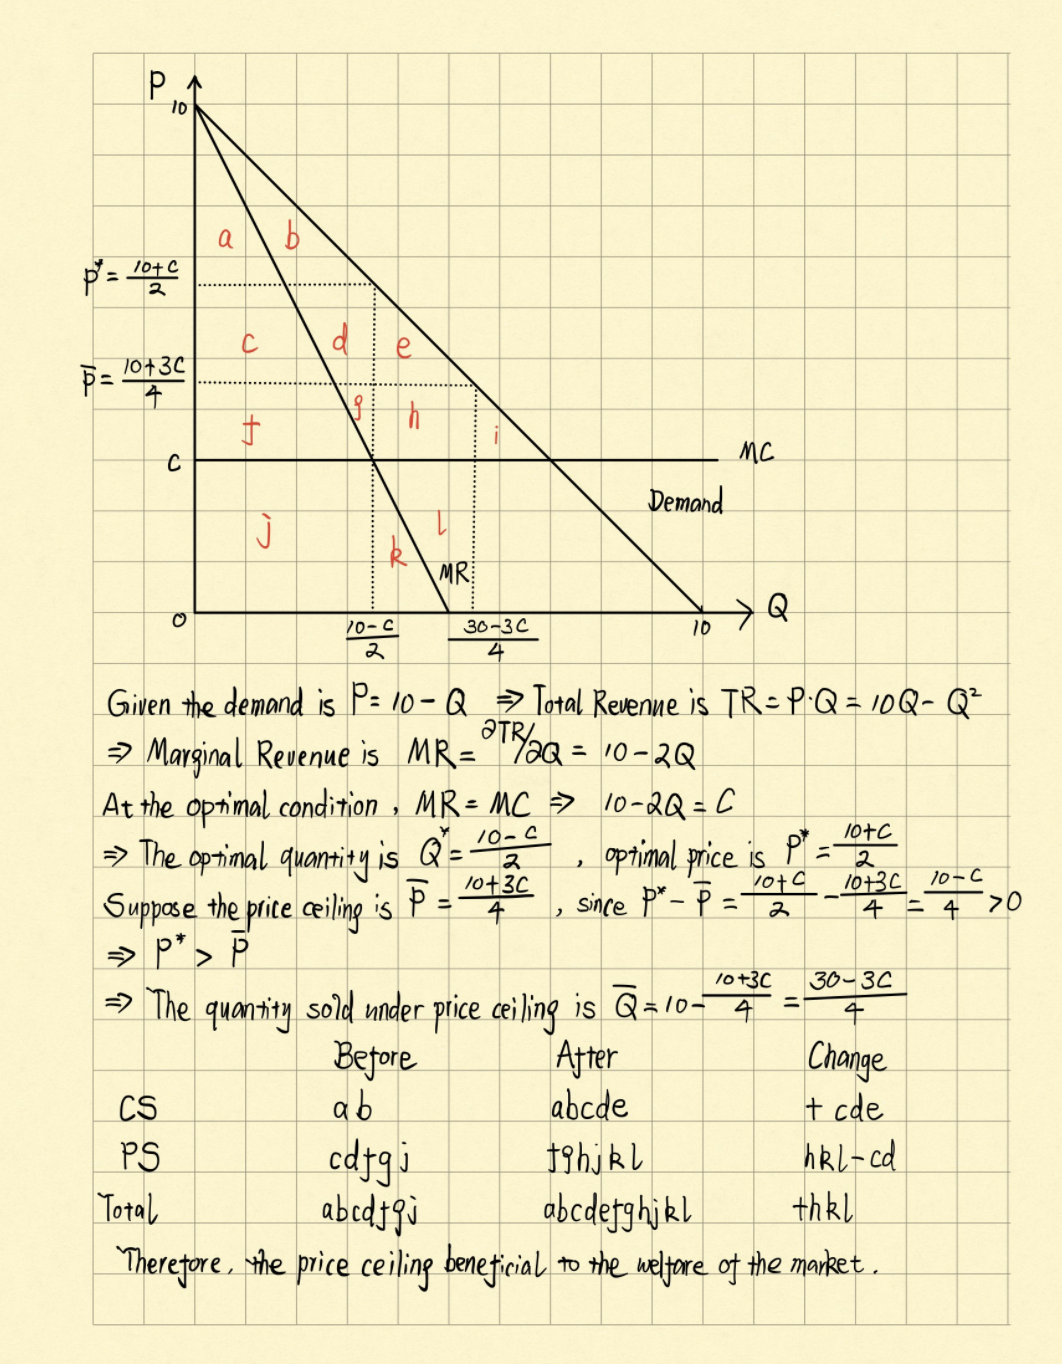 P
10
a b
P* = (10+C)/2
c d e
P̄ = (10+3C)/4
f g h i
C MC
Demand
j k l
MR
0 (10-C)/2 (30-3C)/4 10 Q
Given the demand is P = 10 - Q ⇒ Total Revenue is TR = P·Q = 10Q - Q²
⇒ Marginal Revenue is MR = ∂TR/∂Q = 10 - 2Q
At the optimal condition, MR = MC ⇒ 10-2Q = C
⇒ The optimal quantity is Q* = (10-C)/2 , optimal price is P* = (10+C)/2
Suppose the price ceiling is P̄ = (10+3C)/4 , since P* - P̄ = (10+C)/2 - (10+3C)/4 = (10-C)/4 >0
⇒ P* > P̄
⇒ The quantity sold under price ceiling is Q̄ = 10 - (10+3C)/4 = (30-3C)/4
Before After Change
CS ab abcde + cde
PS cdfgj fghjkl hkl-cd
Total abcdfgj abcdefghjkl +hkl
Therefore, the price ceiling beneficial to the welfare of the market.